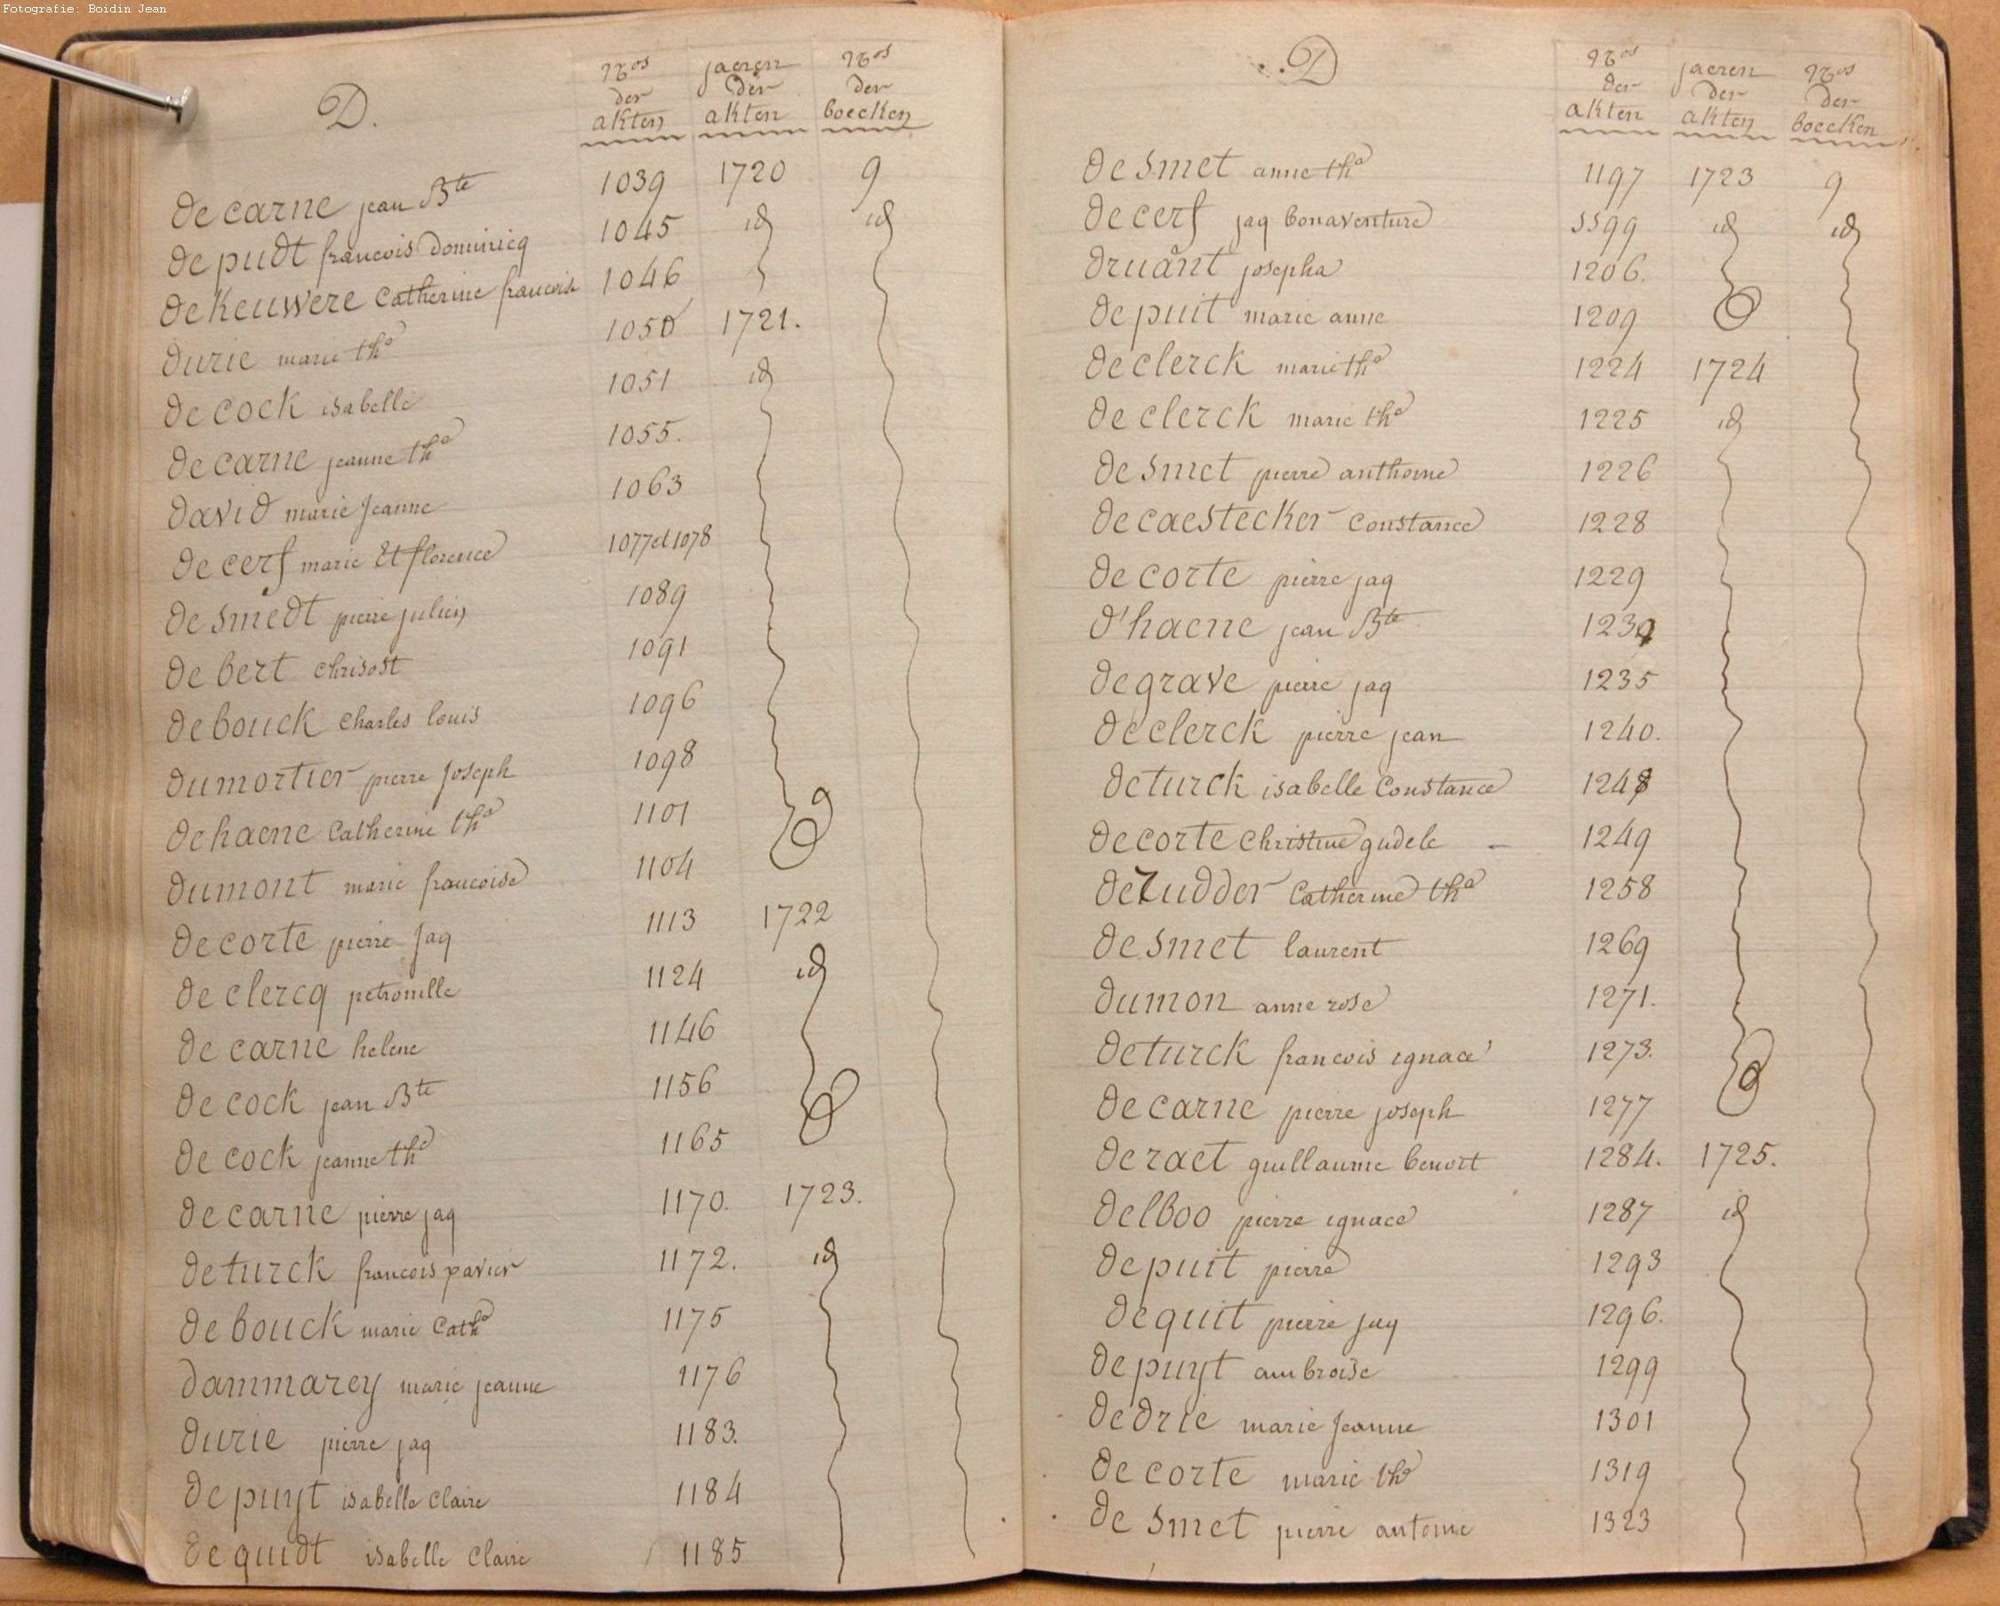 Fotografie: Boidin Jean
D.
Nos der akten
jaeren der akten
Nos der boecken
de carne jean Bte 1039 1720 9
de pudt francois dominicq 1045 id id
de Keuwere Catherine francoise 1046
durie marie tha 1050 1721.
de cock isabelle 1051 id
de carne jeanne tha 1055.
david marie Jeanne 1063
de cerf marie Et florence 1077 et 1078
de smedt pierre julien 1089
de bert chrisost 1091
de bouck charles louis 1096
dumortier pierre Joseph 1098
dehaene Catherine tha 1101
dumont marie francoise 1104
de corte pierre Jaq 1113 1722
de clercq petronille 1124 id
de carne helene 1146
de cock jean Bte 1156
de cock jeanne tha 1165
de carne pierre jaq 1170. 1723.
de turck francois xavier 1172. id
de bouck marie Catha 1175
dammarey marie jeanne 1176
durie pierre jaq 1183.
de puyt isabelle claire 1184
de quidt isabelle claire 1185
D
Nos der akten
jaeren der akten
Nos der boecken
de smet anne tha 1197 1723 9
de cerf jaq bonaventure 1199 id id
druant josepha 1206.
de puit marie anne 1209
de clerck marie tha 1224 1724
de clerck marie tha 1225 id
de smet pierre anthoine 1226
de caestecker Constance 1228
de corte pierre jaq 1229
d'haene jean Bte
de grave pierre jaq 1235
de clerck pierre jean 1240.
de turck isabelle Constance 1248
de corte christine gudele 1249
de rudder Catherine tha 1258
de smet laurent 1269
dumon anne rose 1271.
de turck francois ignace 1273.
de carne pierre joseph 1277
de raet guillaume benoit 1284. 1725.
delboo pierre ignace 1287 id
de puit pierre 1293
de quit pierre jaq 1296.
de puyt ambroise 1299
de drie marie Jeanne 1301
de corte marie tha 1319
de smet pierre antoine 1323